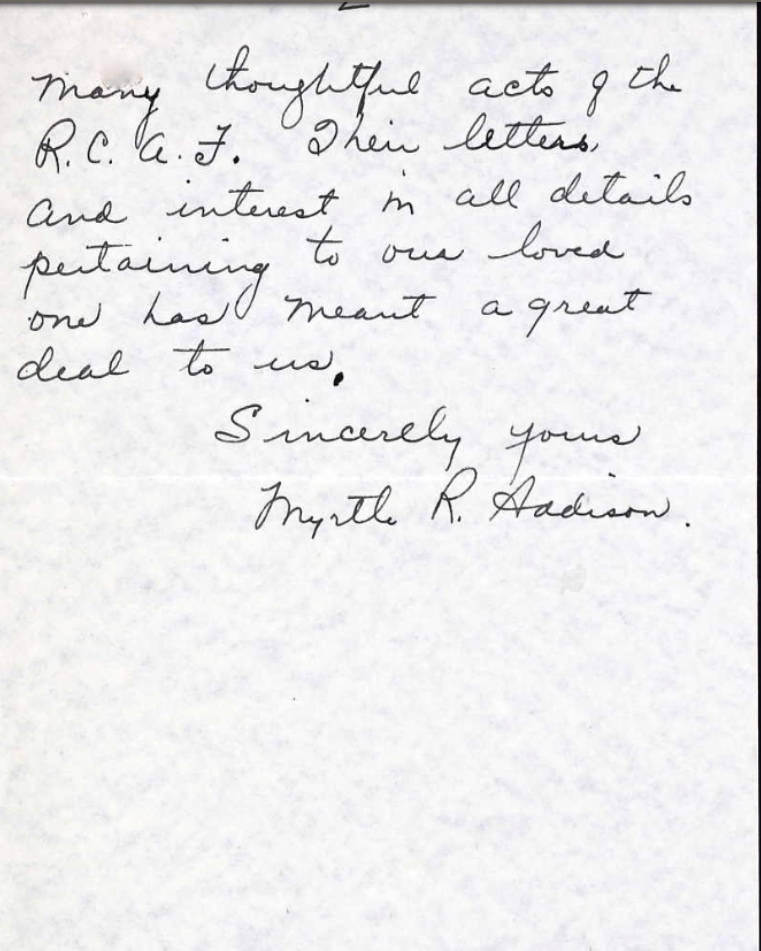 many thoughtful acts of the
R.C.A.F. Their letters,
and interest in all details
pertaining to our loved
one has meant a great
deal to us.
Sincerely yours
Myrtle R. Addison.